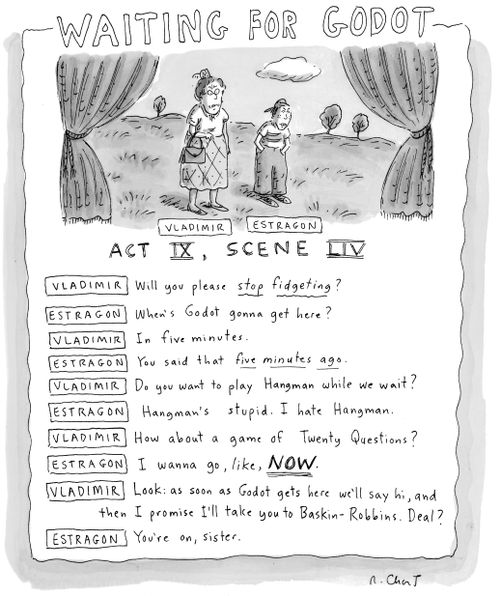 WAITING FOR GODOT
VLADIMIR ESTRAGON
ACT IX, SCENE LIV
VLADIMIR Will you please stop fidgeting?
ESTRAGON When's Godot gonna get here?
VLADIMIR In five minutes.
ESTRAGON You said that five minutes ago.
VLADIMIR Do you want to play Hangman while we wait?
ESTRAGON Hangman's stupid. I hate Hangman.
VLADIMIR How about a game of Twenty Questions?
ESTRAGON I wanna go, like, NOW.
VLADIMIR Look: as soon as Godot gets here we'll say hi, and
then I promise I'll take you to Baskin-Robbins. Deal?
ESTRAGON You're on, sister.
R. Chast